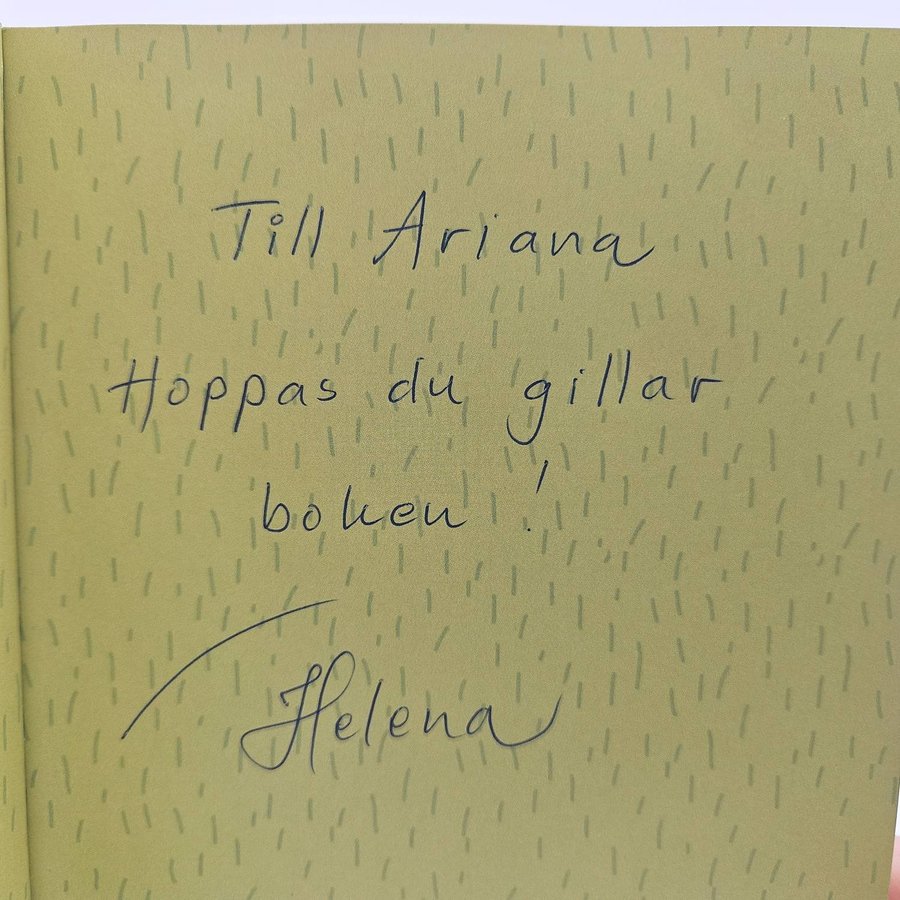 Till Ariana
Hoppas du gillar
boken!
Helena